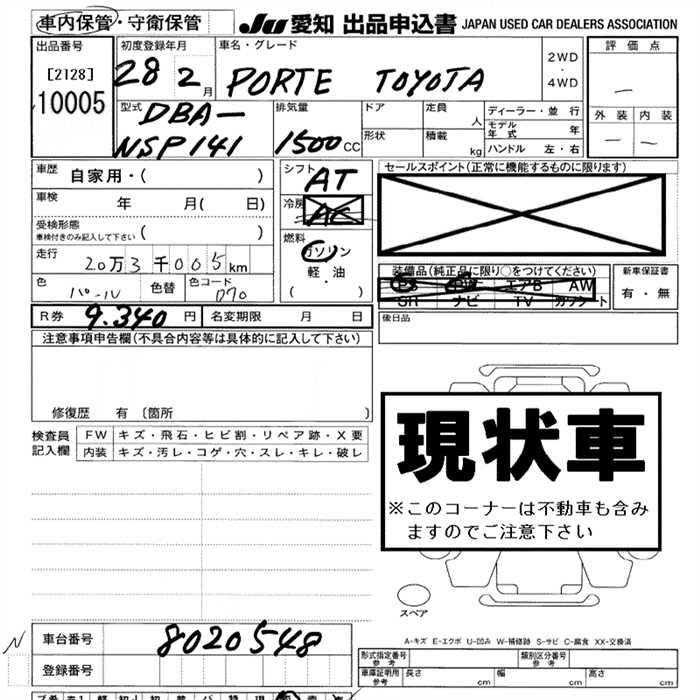 車内保管・守衛保管
JU 愛知 出品申込書 JAPAN USED CAR DEALERS ASSOCIATION
出品番号 初度登録年月 車名・グレード 評価点
[2128] 28 2月 PORTE TOYOTA 2WD・4WD —
10005
型式 排気量 ドア 定員 人 ディーラー・並行 外装 内装
DBA- モデル年式 年
NSP141 1500cc 形状 積載 kg ハンドル 左・右 — —
車歴 自家用・( )
シフト AT
セールスポイント(正常に機能するものに限ります)
車検 年 月( 日)
冷房 AC
受検形態
車検付きのみ記入して下さい ( )
燃料 ガソリン
軽・油
( ・ )
走行 20万3千005km
装備品(純正品に限り○をつけてください) 新車保証書
PS PW エアB AW 有・無
SR ナビ TV カワシート
色 パール 色替 色コード 070
R券 9.340円 名変期限 月 日
後日品
注意事項申告欄(不具合内容等は具体的に記入して下さい)
修復歴 有 〔箇所 〕
検査員 FW キズ・飛石・ヒビ割・リペア跡・X要
記入欄 内装 キズ・汚レ・コゲ・穴・スレ・キレ・破レ
現状車
※このコーナーは不動車も含み
ますのでご注意下さい
スペア
A-キズ E-エクボ U-凹み W-補修跡 S-サビ C-腐食 XX-交換済
N 車台番号 8020548
登録番号
形式指定番号 参考 類別区分番号 参考
車庫証明用 参考 長さ cm 幅 cm 高さ cm